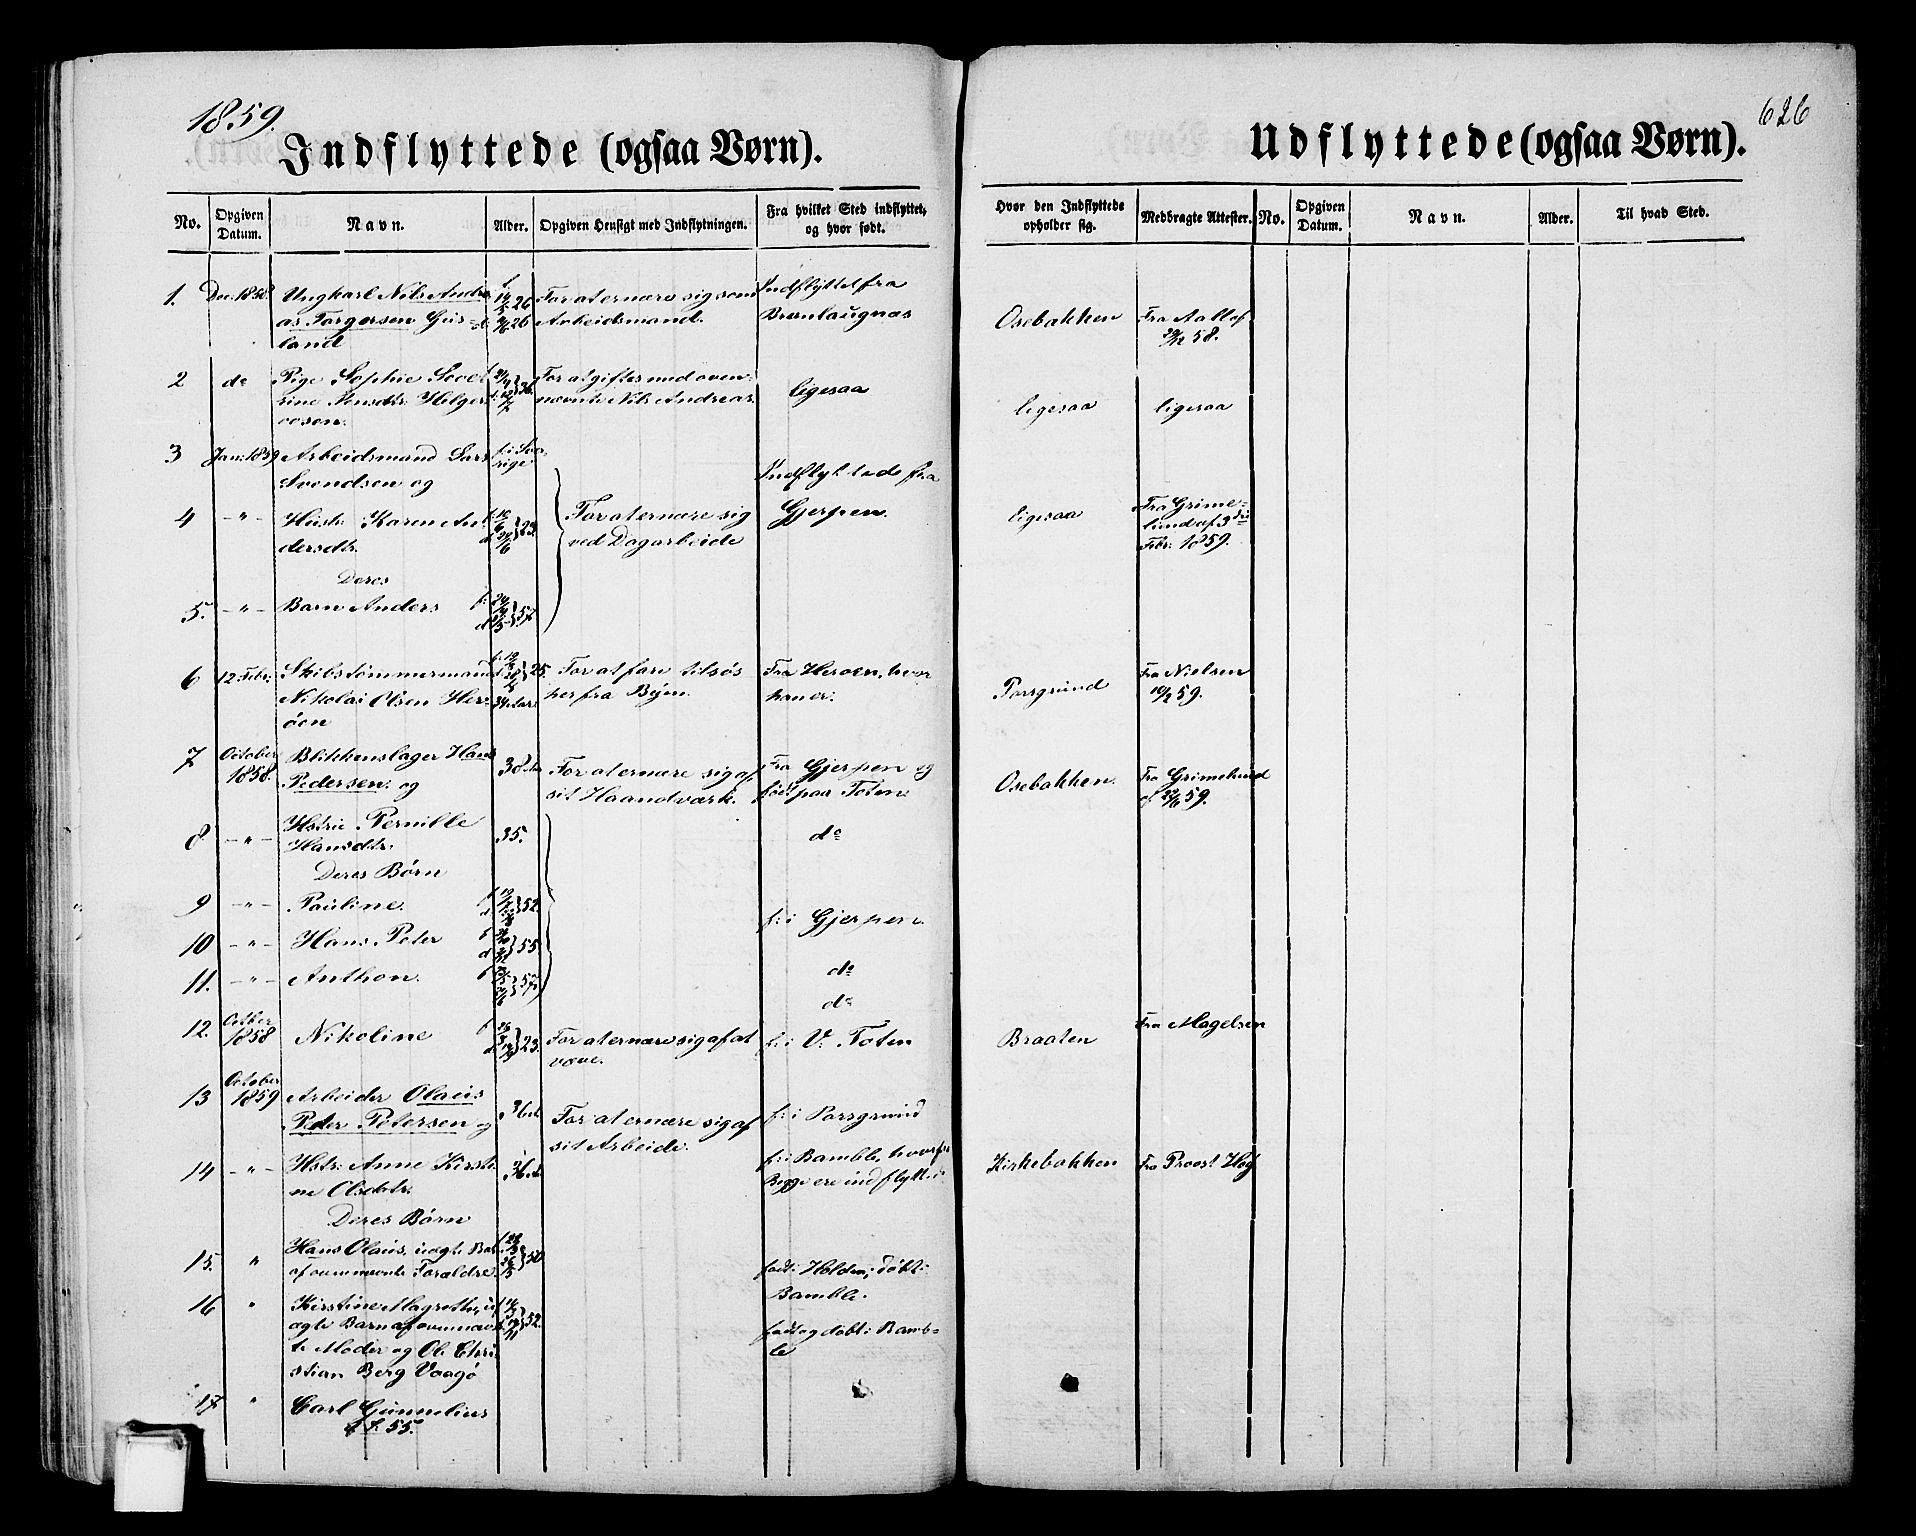 1859.
626
Indflyttede (ogsaa Børn).
Udflyttede (ogsaa Børn).
No. Opgiven Datum. Navn. Alder. Opgiven Hensigt med Indflytningen. Fra hvilket Sted indflyttet, og hvor født. Hvor den Indflyttede opholder sig. Medbragte Attester. No. Opgiven Datum. Navn. Alder. Til hvad Sted.
1. Dec: 1858 Ungkarl Nils Andre- 26 For at ernære sig som Indflyttet fra
as Torgersen 26 Arbeidsmand. Osebakken Fra
land 58.
2 do Pige Sophie 36 For at giftes med oven- ligesaa ligesaa ligesaa
rine Jensdtr: nævnte Nils Andreas.
3 Jan: 1859 Arbeidsmand Lars f: i Sve-
Svendsen og rige Indflyttede fra
4 - " - Hustr: Karen An- 23. For at ernære sig Gjerpen. ligesaa Fra Grime-
dersdtr. ved Dagarbeide lund af 3die
Febr: 1859.
Deres
5. - " - Barn Anders f: 57
6 12 Febr: Skibstømmermand 25. For at fare tilsøs Fra Herøen, hvor Porsgrund Fra Nielsen
Nikolai Olsen Her- her fra Byen. han er: 10/2 59.
øen
7 October 1858. Blikkenslager Hans 38 For at ernære sig af Fra Gjerpen og Osebakken. Fra Grimelund
Pedersen. og sit Haandværk. født paa Toten 59.
8 - " - Hstrue Pernille 35. do
Hansdtr:
Deres Børn
9 - " - Pauline. 52. f: i Gjerpen.
10 - " - Hans Peter 55. do
11. - " - Anthon. 57. do
12. Octber 1858 Nikoline 23. For at ernære sig af at f: i V: Toten Braaten Fra Magelsen
væve.
13 October 1859 Arbeider Olaus For at ernære sig af f: i Porsgrund
Peder Petersen og sit Arbeide.
14 - " - Hstr: Anne Kirsti- f: i Bamble, hvorfra Kirkebakken Fra Provst
ne Olsdtr: Begge ere indflyttede
Deres Børn
15. " Hans Olaus, uægte Barn 50 født i Holden; døbt i
af ovennævnte Forældre. Bamble.
16 " Kirstine Magrethe, u- 52. født og døbt i Bamb-
ægte Barn af ovennævn- le
te Moder og Ole Chri-
stian Berg Vaagø
17 " Carl Gunnelius
f: 55.